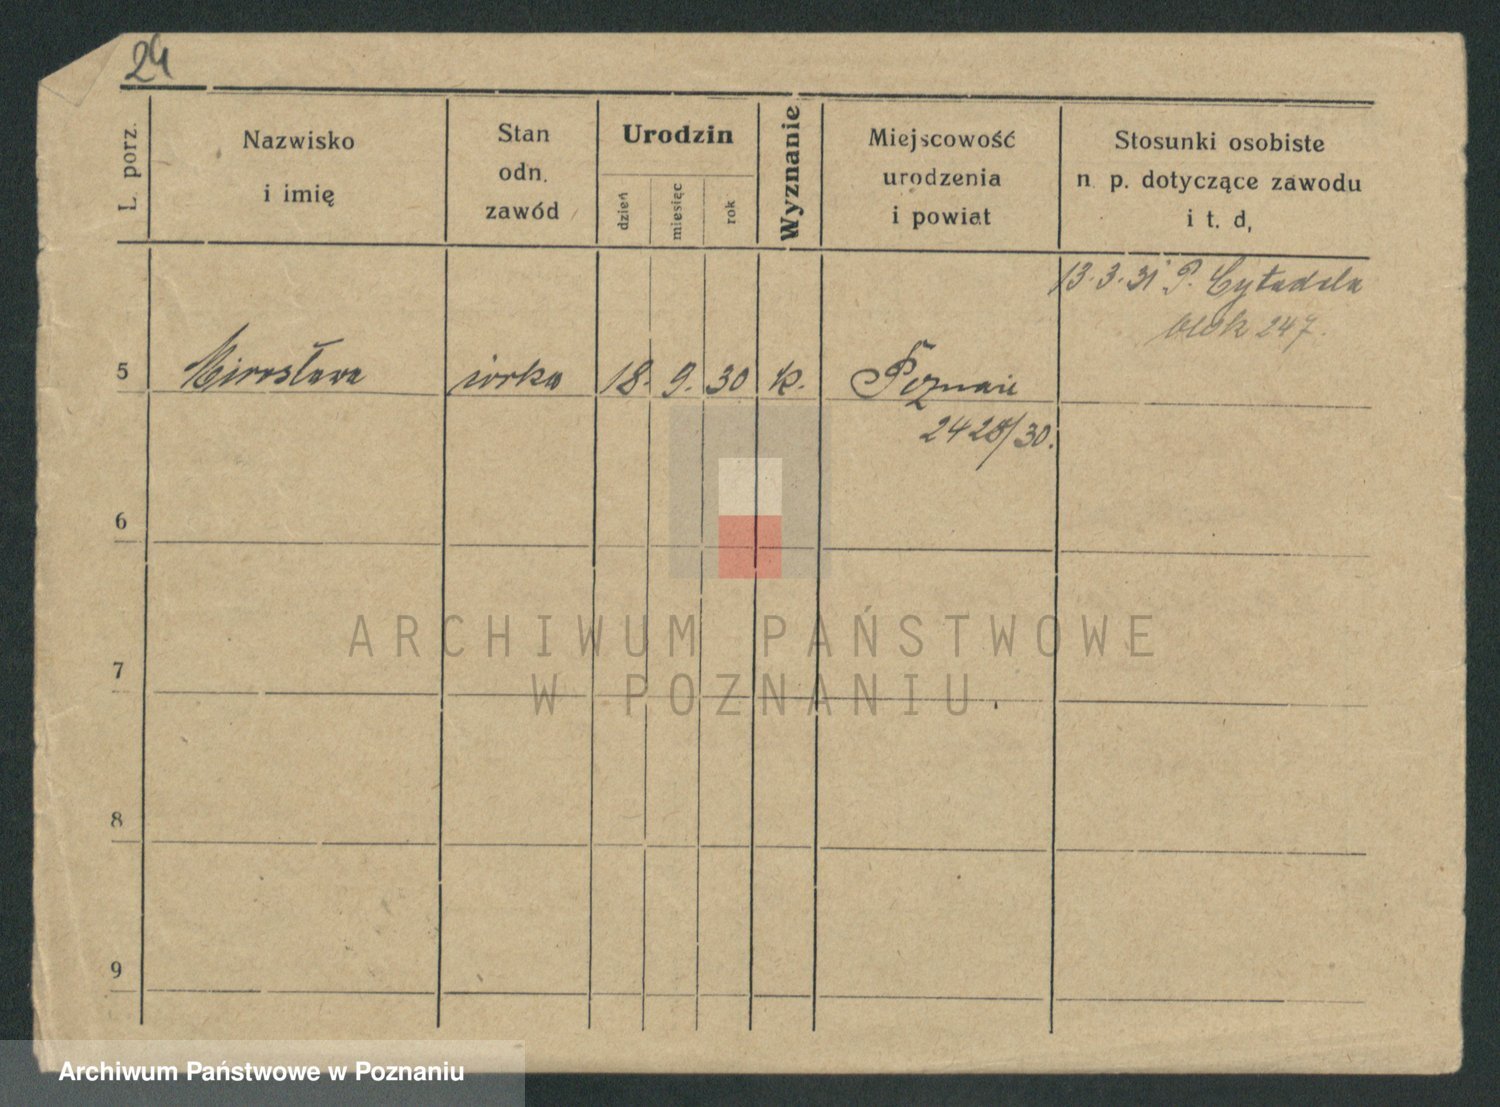 24
L. porz.
Nazwisko
i imię
Stan
odn.
zawód
Urodzin
dzień
miesiąc
rok
Wyznanie
Miejscowość
urodzenia
i powiat
Stosunki osobiste
n. p. dotyczące zawodu
i t. d,
13.3.31 P. Cytadela
blok 247.
5 Mirosława córka 18. 9. 30 k. Poznań
2428/30.
6
7
8
9
ARCHIWUM PAŃSTWOWE
W POZNANIU
Archiwum Państwowe w Poznaniu